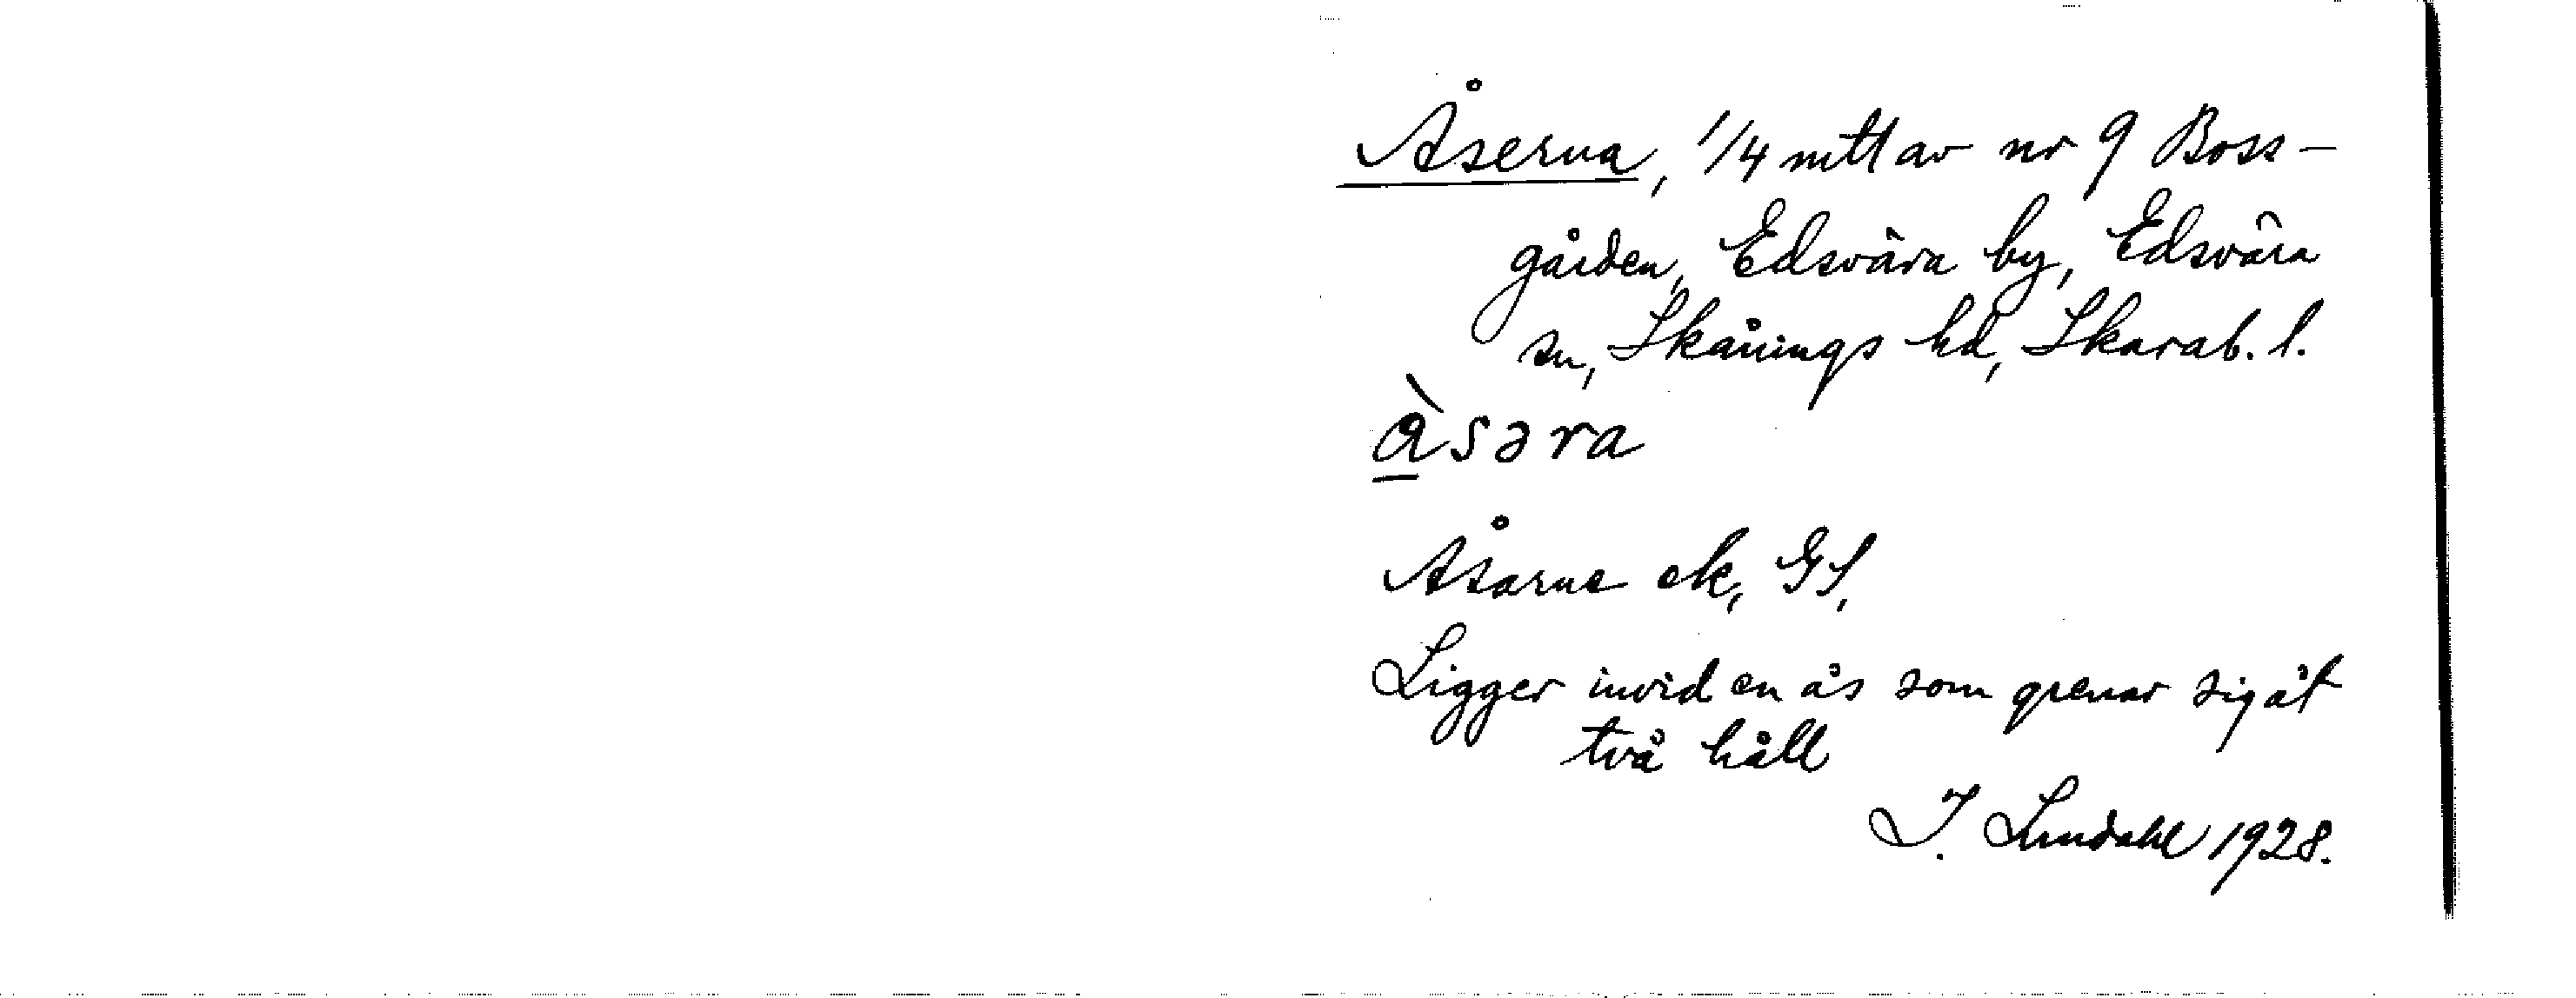 Åserna, 1/4 mtl av nr 9 Boss-
gården, Edsvära by, Edsvära
sn, Skånings hd, Skarab. l.
à̲səra
Åsarne ek, GS,
Ligger invid en ås som grenar sig åt
två håll
J. Lundahl 1928.